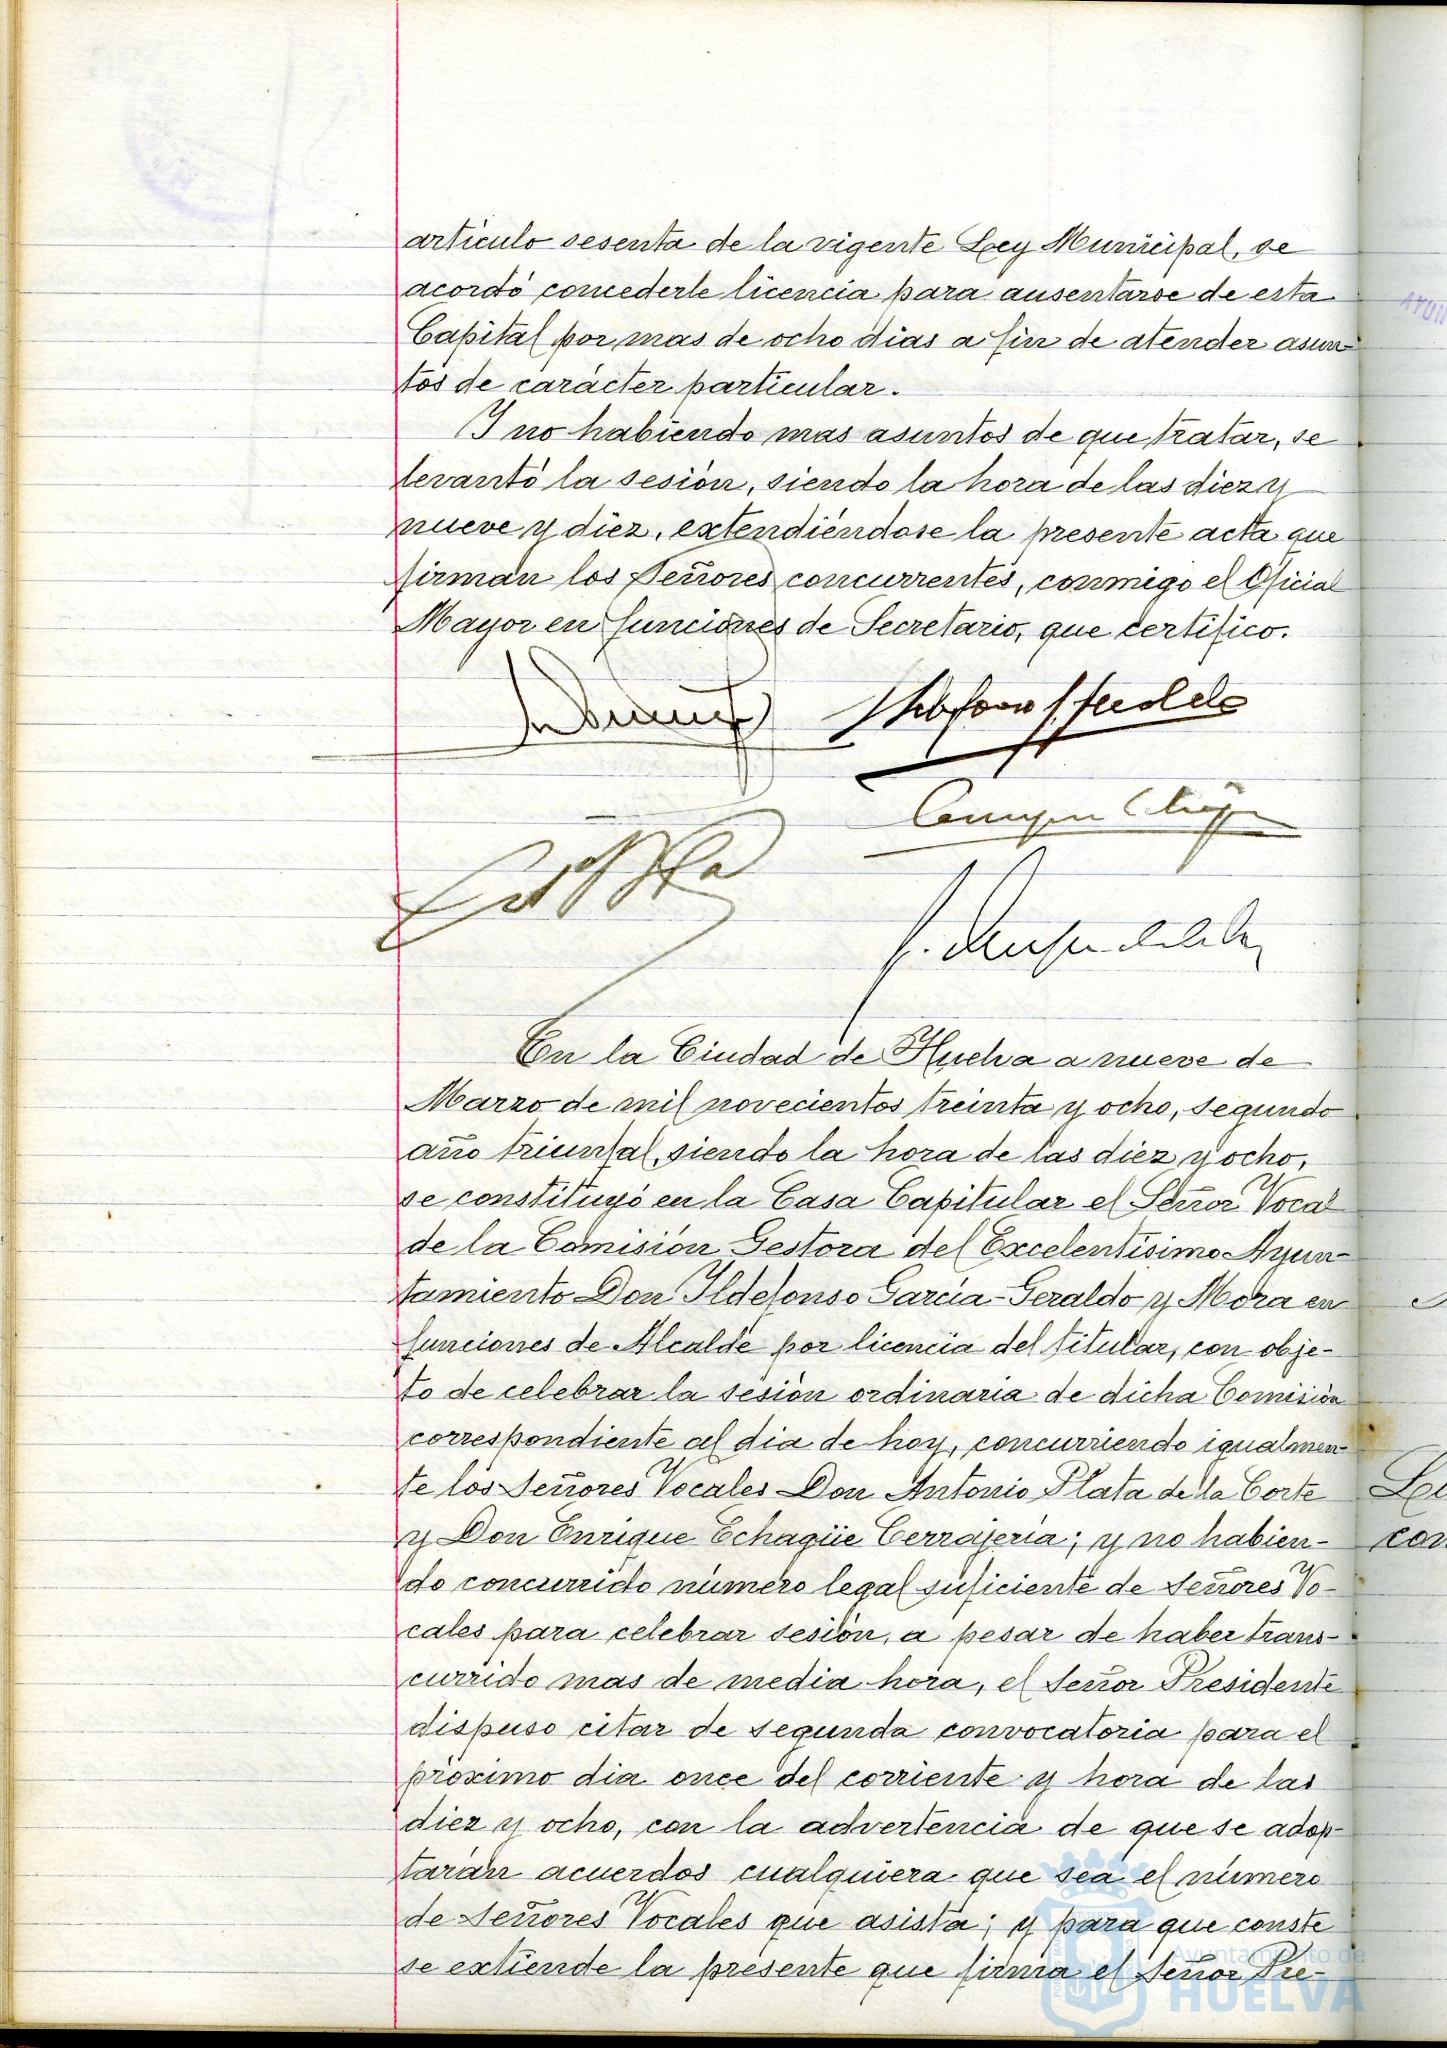 artículo sesenta de la vigente Ley Municipal, se
acordó concederle licencia para ausentarse de esta
Capital por mas de ocho dias a fin de atender asun-
tos de carácter particular.
Y no habiendo mas asuntos de que tratar, se
levantó la sesión, siendo la hora de las diez y
nueve y diez, extendiéndose la presente acta que
firman los Señores concurrentes, conmigo el Oficial
Mayor en funciones de Secretario, que certifico.
En la Ciudad de Huelva a nueve de
Marzo de mil novecientos treinta y ocho, segundo
año triunfal, siendo la hora de las diez y ocho,
se constituyó en la Casa Capitular el Señor Vocal
de la Comisión Gestora del Excelentísimo Ayun-
tamiento Don Ildefonso García-Geraldo y Mora en
funciones de Alcalde por licencia del titular, con obje-
to de celebrar la sesión ordinaria de dicha Comisión
correspondiente al dia de hoy, concurriendo igualmen-
te los Señores Vocales Don Antonio Plata de la Corte
y Don Enrique Echagüe Cerrajería; y no habien-
do concurrido número legal suficiente de Señores Vo-
cales para celebrar sesión, a pesar de haber trans-
currido mas de media hora, el Señor Presidente
dispuso citar de segunda convocatoria para el
próximo dia once del corriente y hora de las
diez y ocho, con la advertencia de que se adop-
tarán acuerdos cualquiera que sea el número
de Señores Vocales que asista; y para que conste
se extiende la presente que firma el Señor Pre-
Ayuntamiento de
HUELVA